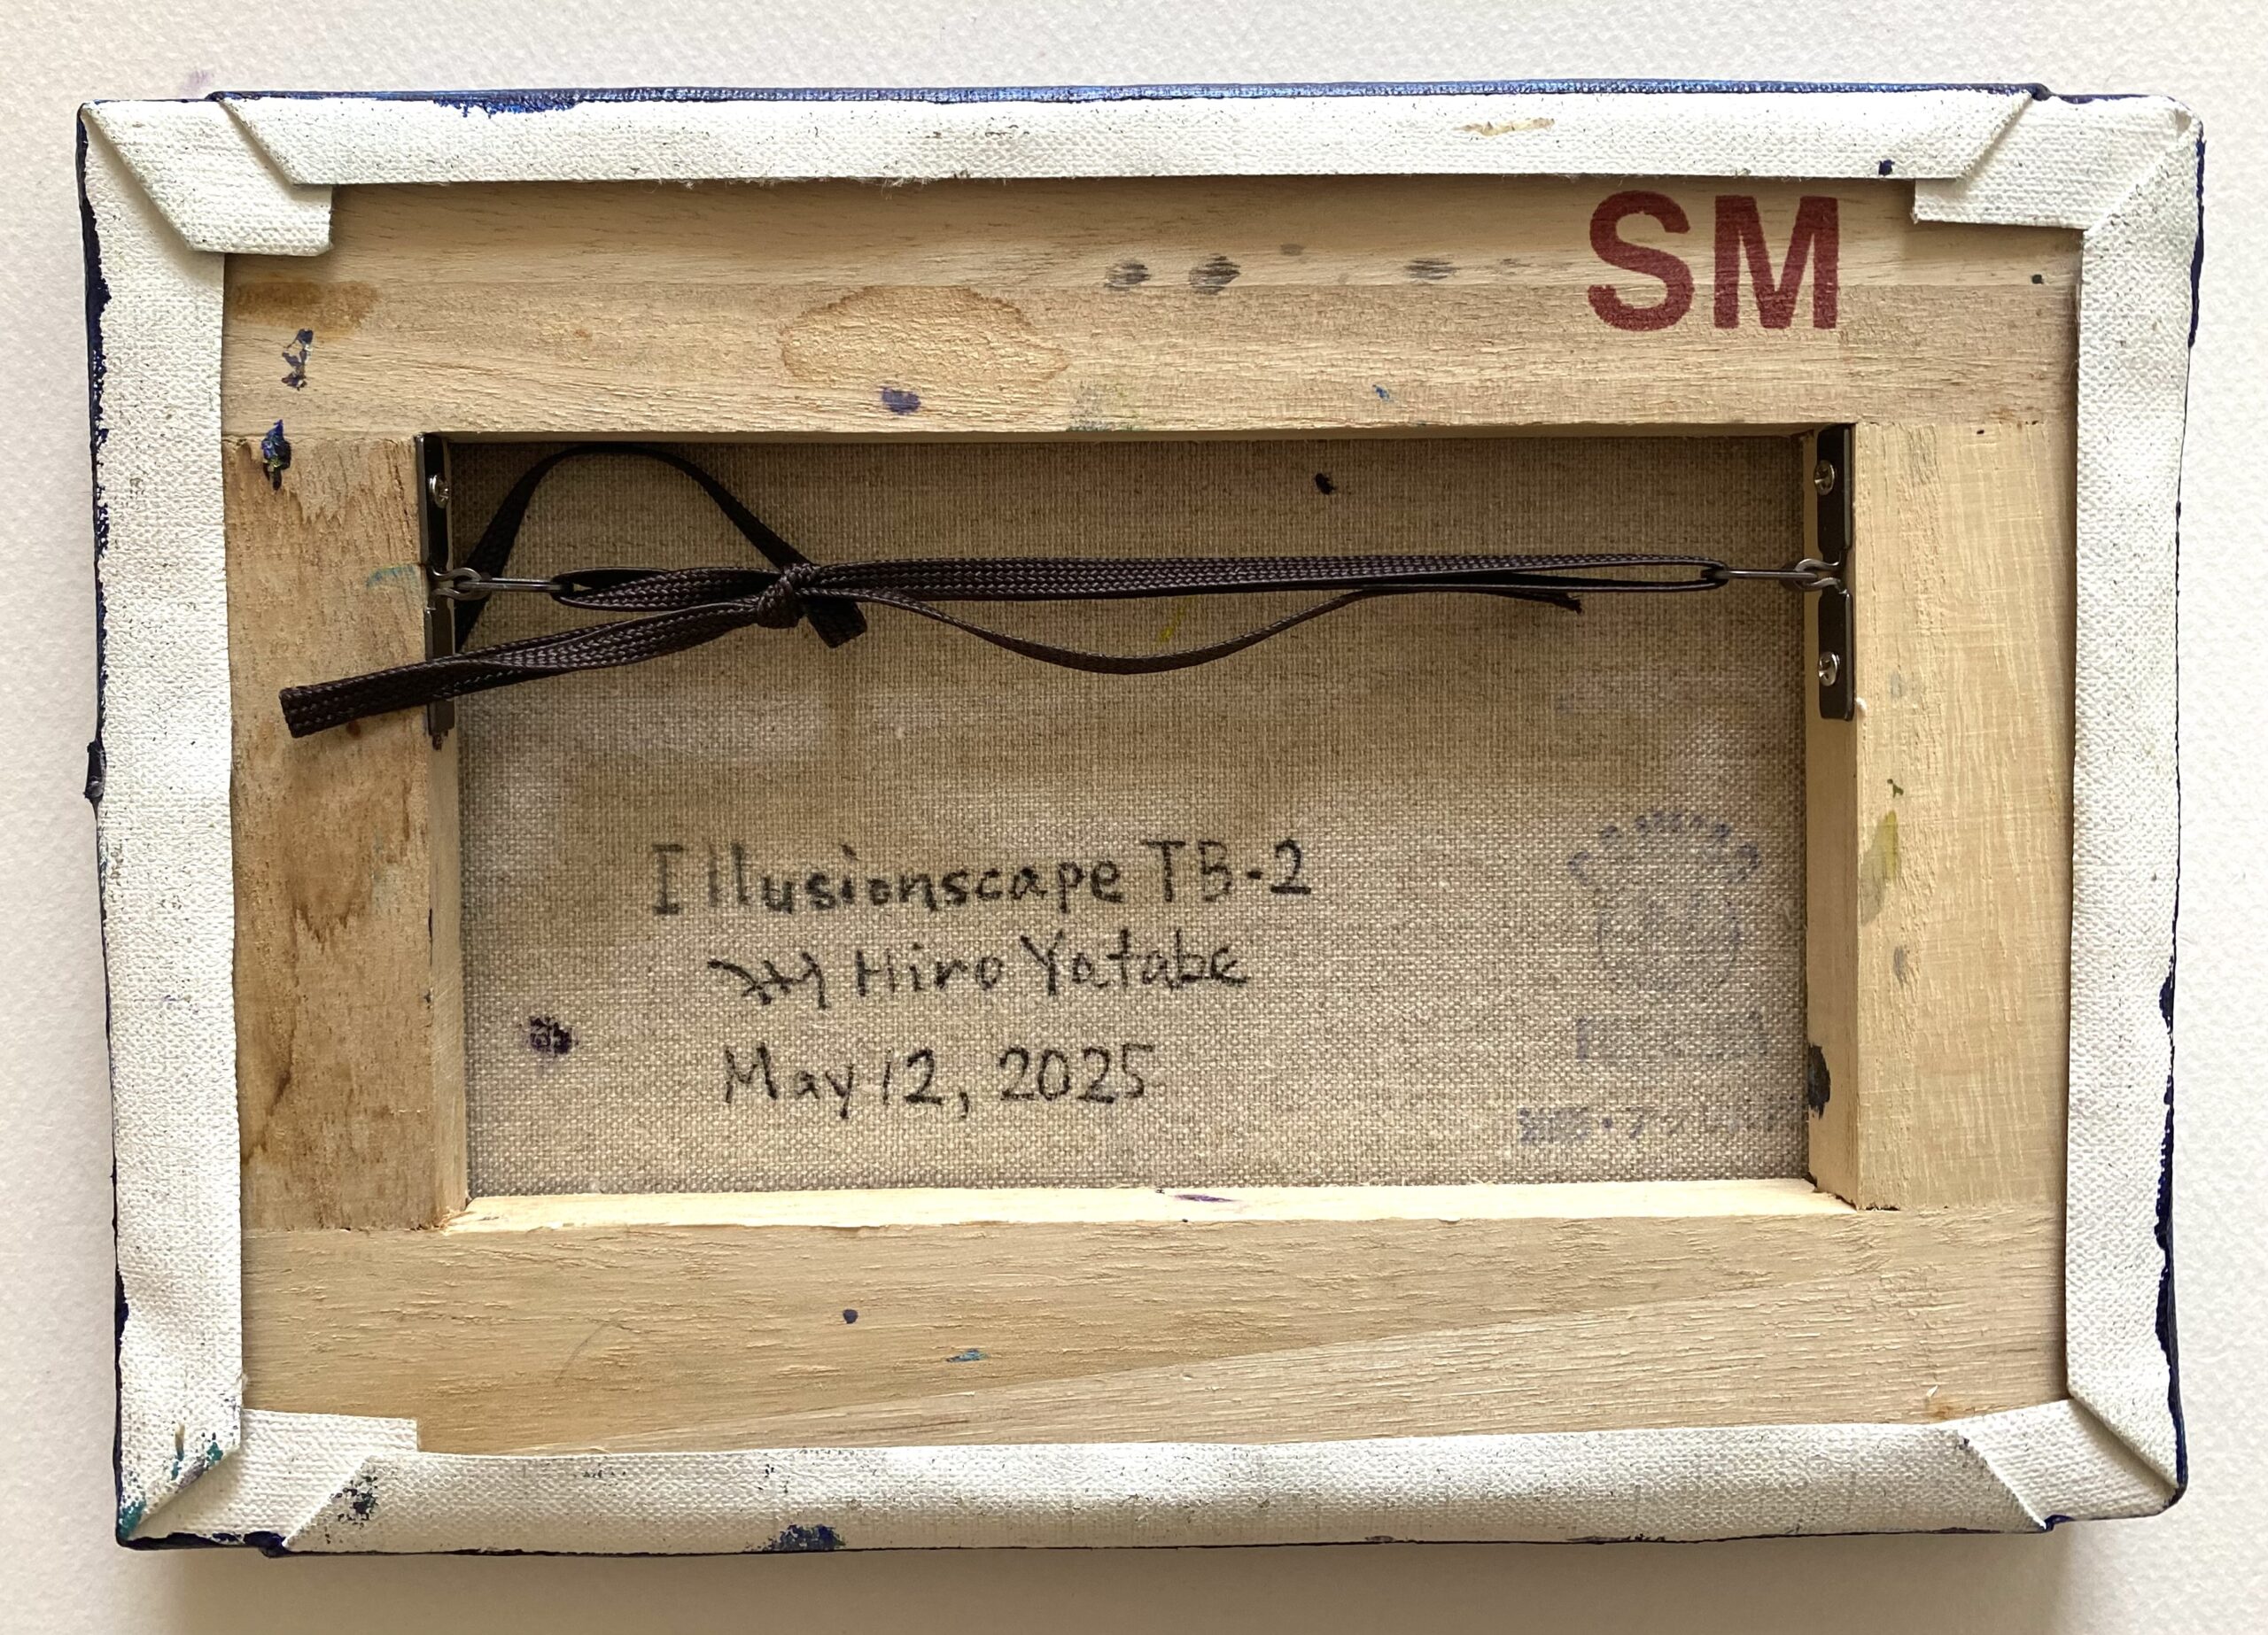 SM
Illusionscape TB-2
Hiro Yatabe
May 12, 2025